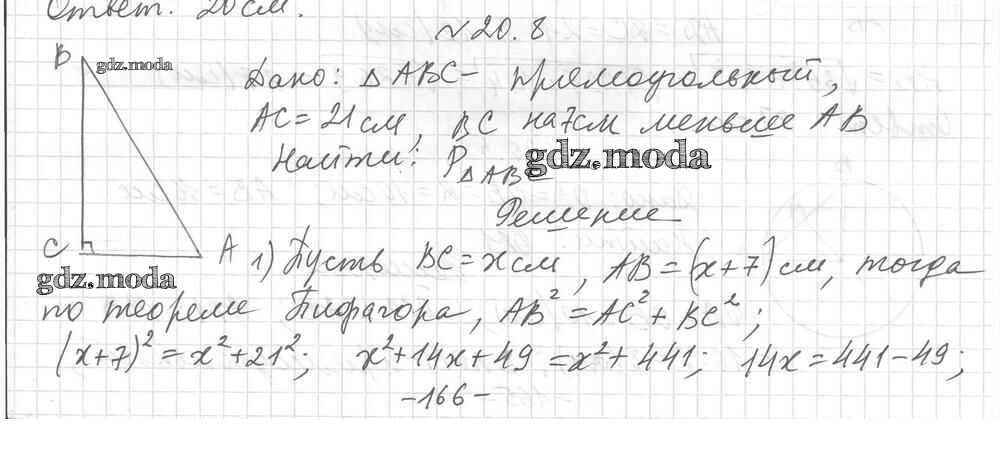 Ответ: 20 см.
№ 20. 8
B
gdz.moda
Дано: △ ABC – прямоугольный,
AC = 21 см, BC на 7 см меньше AB
Найти: P△ABC
gdz.moda
Решение
C
A
gdz.moda
1) Пусть BC = x см, AB = (x+7) см, тогда
по теореме Пифагора, AB² = AC² + BC²;
(x+7)² = x² + 21²; x² + 14x + 49 = x² + 441; 14x = 441 – 49;
-166-